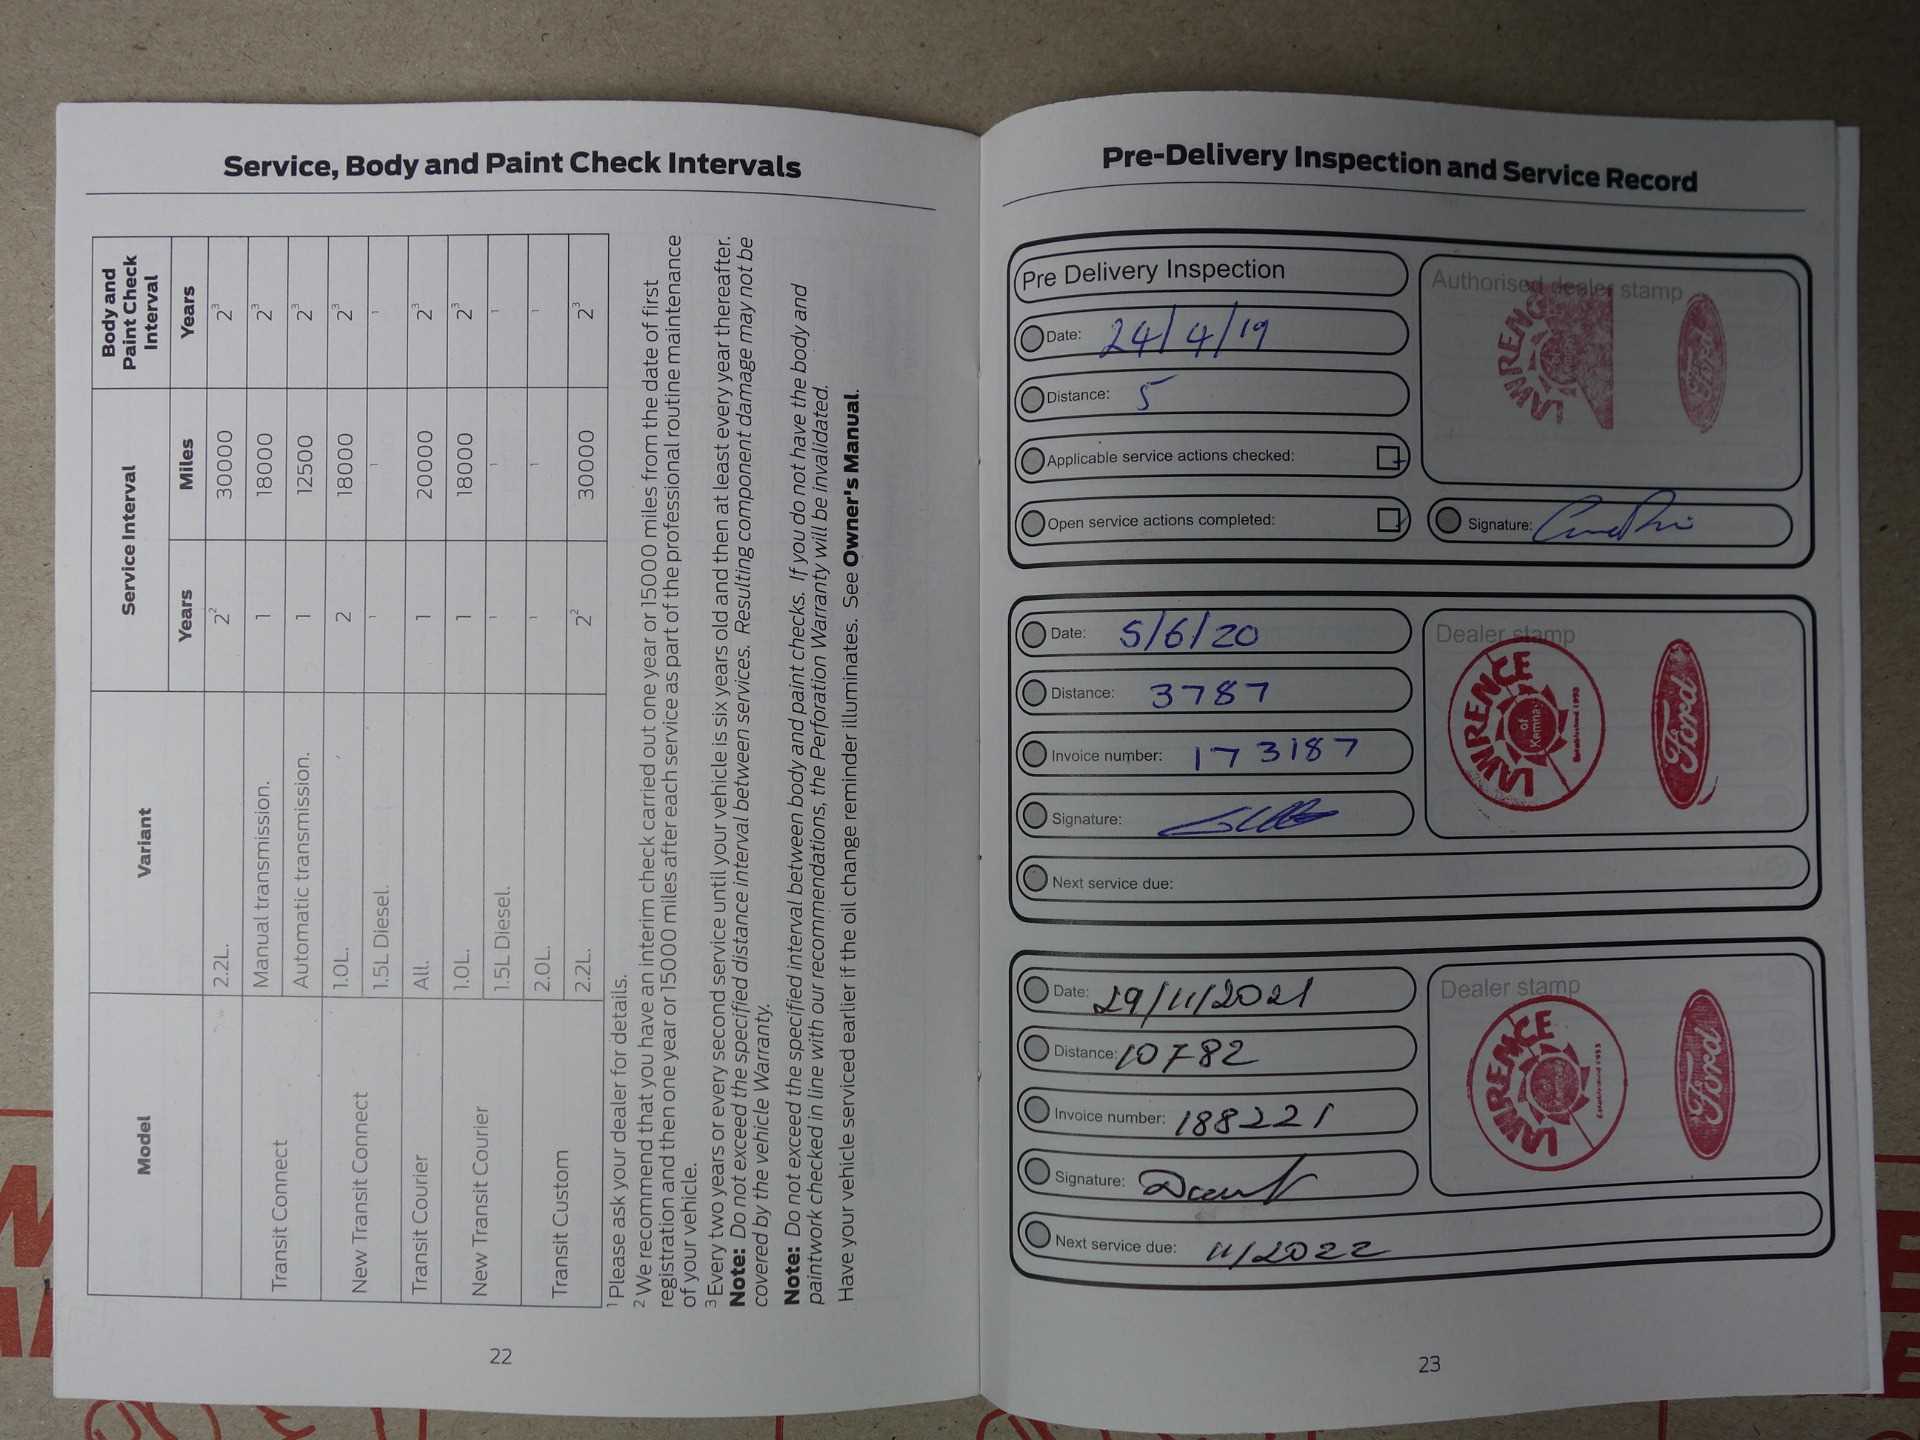 Service, Body and Paint Check Intervals
Model
Variant
Service Interval
Body and
Paint Check
Interval
Years
Miles
Years
2.2L. 2² 30000 2³
Transit Connect
Manual transmission. 1 18000 2³
Automatic transmission. 1 12500 2³
New Transit Connect
1.0L. 2 18000 2³
1.5L Diesel. ¹ ¹ ¹
Transit Courier
All. 1 20000 2³
New Transit Courier
1.0L. 1 18000 2³
1.5L Diesel. ¹ ¹ ¹
Transit Custom
2.0L. ¹ ¹ ¹
2.2L. 2² 30000 2³
¹ Please ask your dealer for details.
² We recommend that you have an interim check carried out one year or 15000 miles from the date of first
registration and then one year or 15000 miles after each service as part of the professional routine maintenance
of your vehicle.
³ Every two years or every second service until your vehicle is six years old and then at least every year thereafter.
Note: Do not exceed the specified distance interval between services. Resulting component damage may not be
covered by the vehicle Warranty.
Note: Do not exceed the specified interval between body and paint checks. If you do not have the body and
paintwork checked in line with our recommendations, the Perforation Warranty will be invalidated.
Have your vehicle serviced earlier if the oil change reminder illuminates. See Owner's Manual.
22
Pre-Delivery Inspection and Service Record
Pre Delivery Inspection
Date: 24/4/19
Distance: 5
Applicable service actions checked:
Open service actions completed:
Authorised dealer stamp
LAWRENC
Ford
Signature:
Date: 5/6/20
Distance: 3787
Invoice number: 173187
Signature:
Next service due:
Dealer stamp
LAWRENCE
of
Kemnay
Established 1993
Ford
Date: 29/11/2021
Distance: 10782
Invoice number: 188221
Signature:
Next service due: 11/2022
Dealer stamp
LAWRENCE
Established 1993
Ford
23